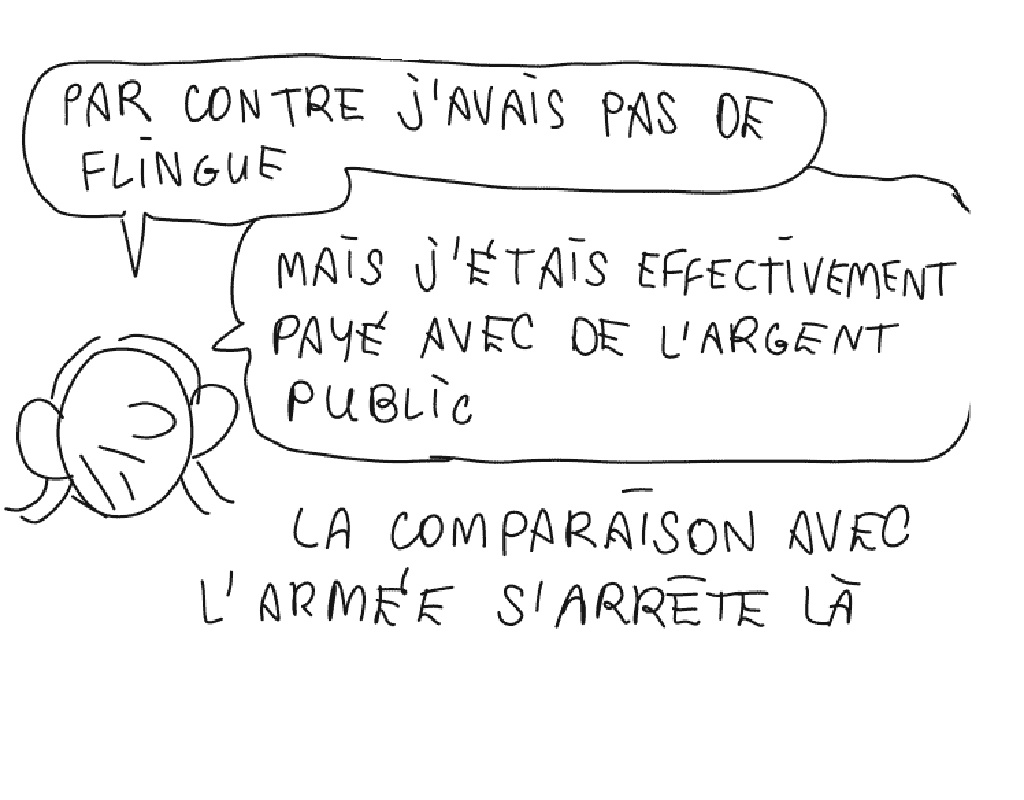 PAR CONTRE J'AVAIS PAS DE
FLINGUE
MAIS J'ÉTAIS EFFECTIVEMENT
PAYÉ AVEC DE L'ARGENT
PUBLIC
LA COMPARAISON AVEC
L'ARMÉE S'ARRÊTE LÀ